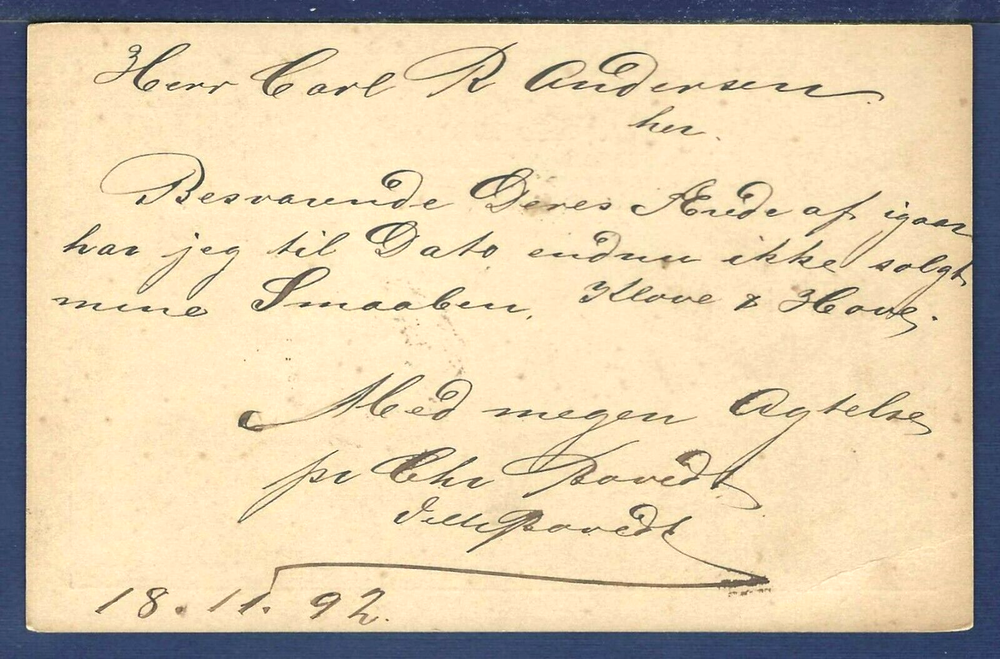 Herr Carl R Andersen
her.
Besvarende Deres Ærede af igaar
har jeg til Dato endnu ikke solgt
mine Smaaben, Klove & Hove.
Med megen Agtelse
pr Chr Bovedt
Bovedt
18.11.92.